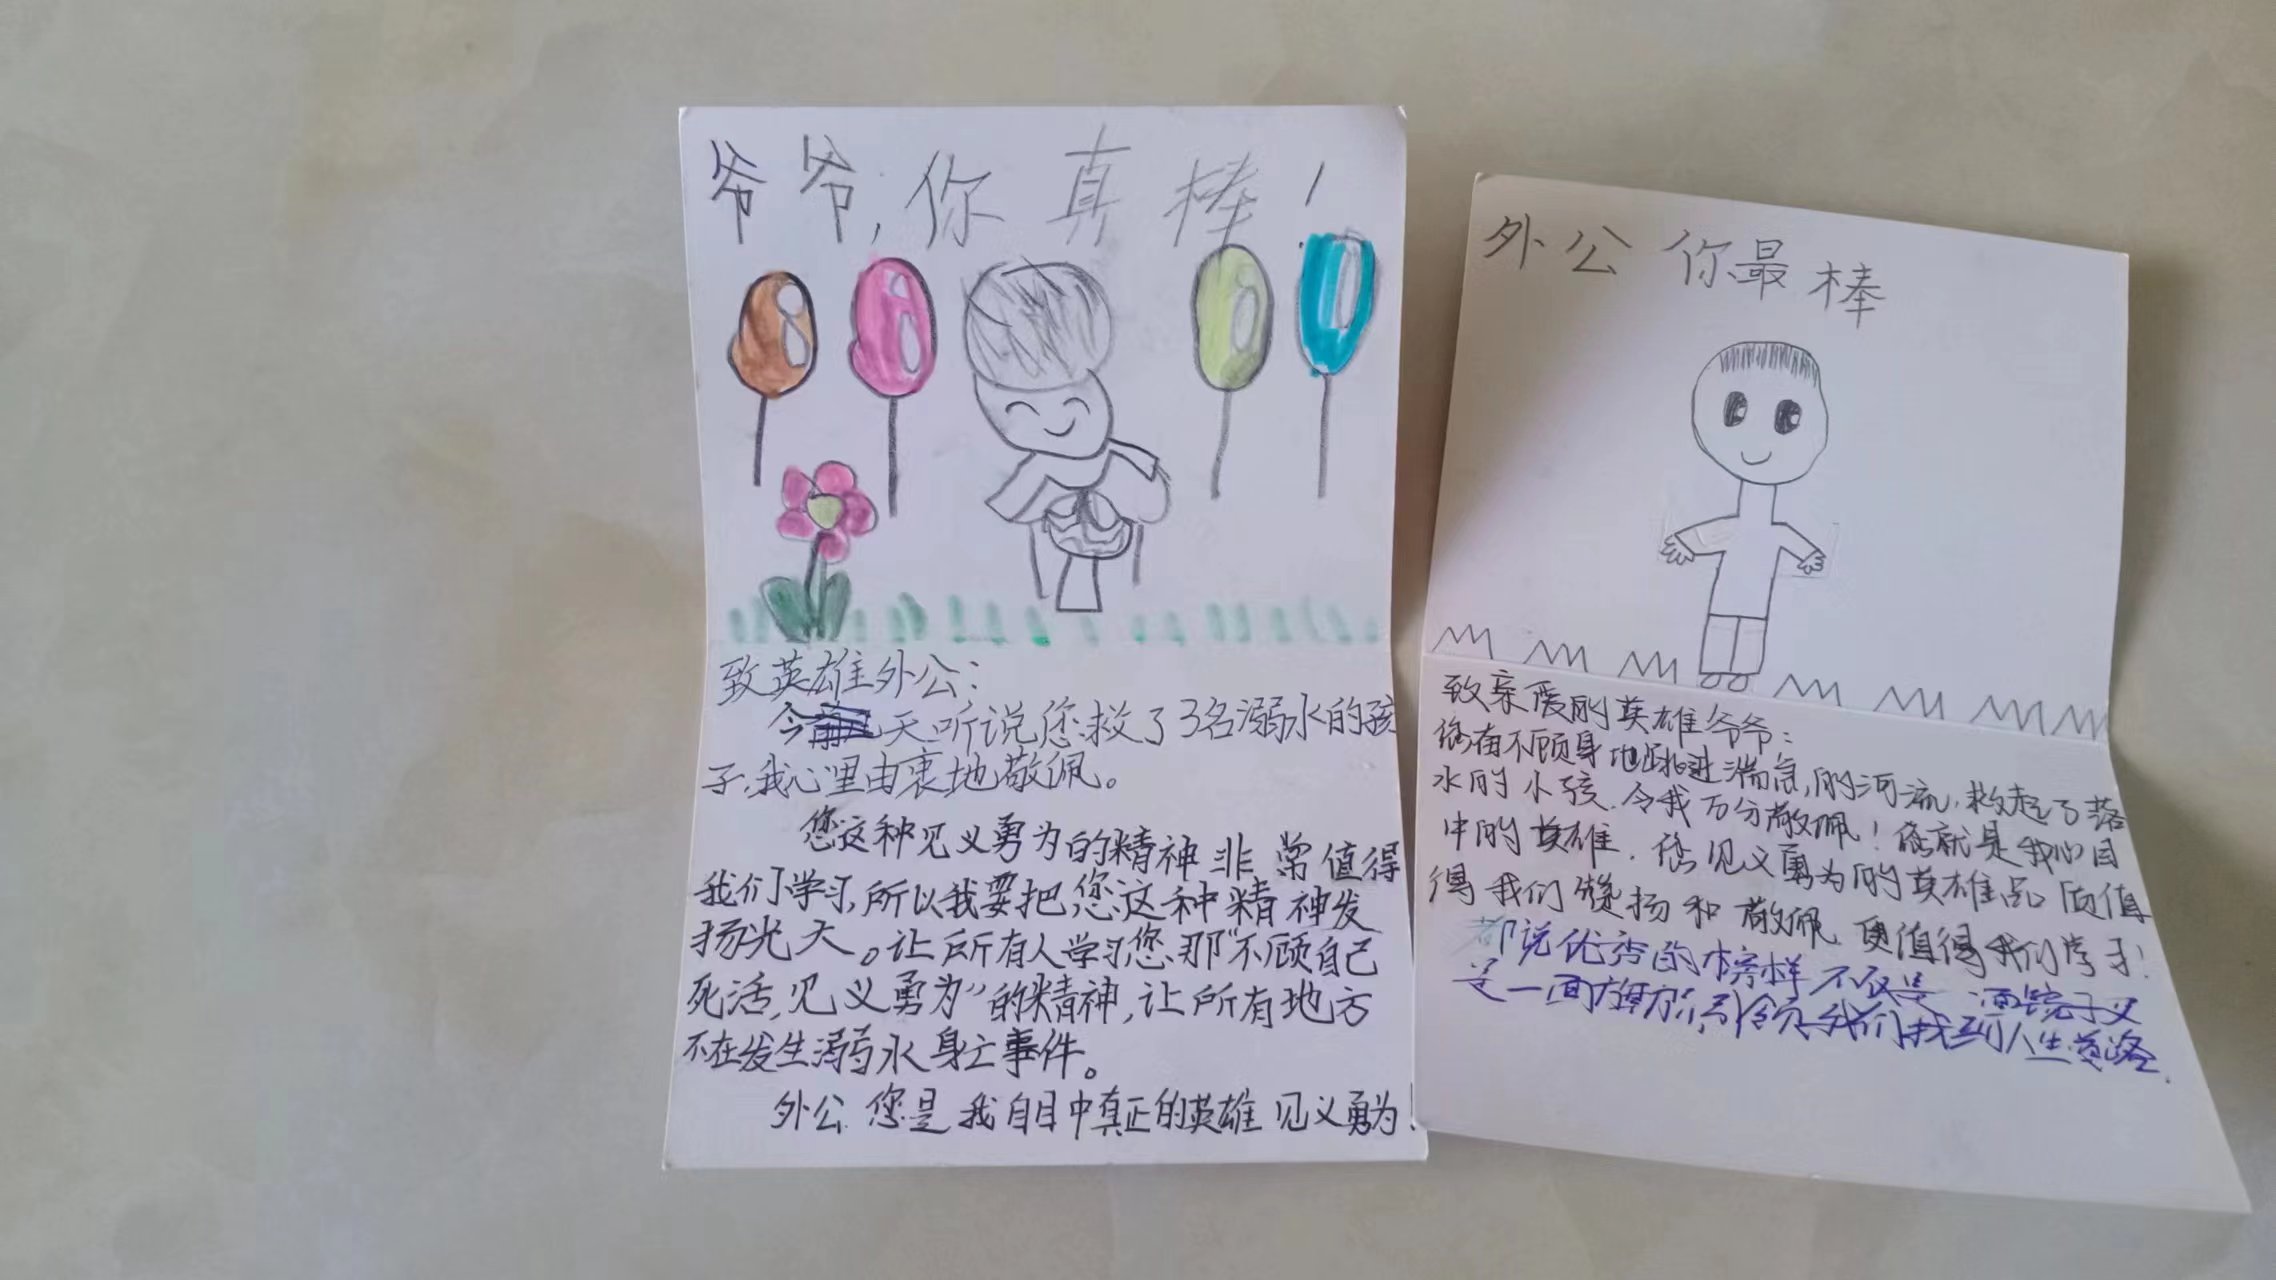 爷爷,你真棒!
致英雄外公:
今天听说您救了3名溺水的孩
子,我心里由衷地敬佩。
您这种见义勇为的精神非常值得
我们学习,所以我要把您这种精神发
扬光大。让所有人学习您那“不顾自己
死活,见义勇为”的精神,让所有地方
不在发生溺水身亡事件。
外公您是我自目中真正的英雄见义勇为!
外公你最棒
致亲爱的英雄爷爷:
您奋不顾身地跳进湍急,的河流,救起了落
水的小孩.令我万分敬佩!您就是我心目
中的英雄.您见义勇为的英雄品质值
得我们赞扬和敬佩.更值得我们学习!
都说优秀的榜样不仅是一面镜子又
是一面旗帜引领我们找到人生道路.